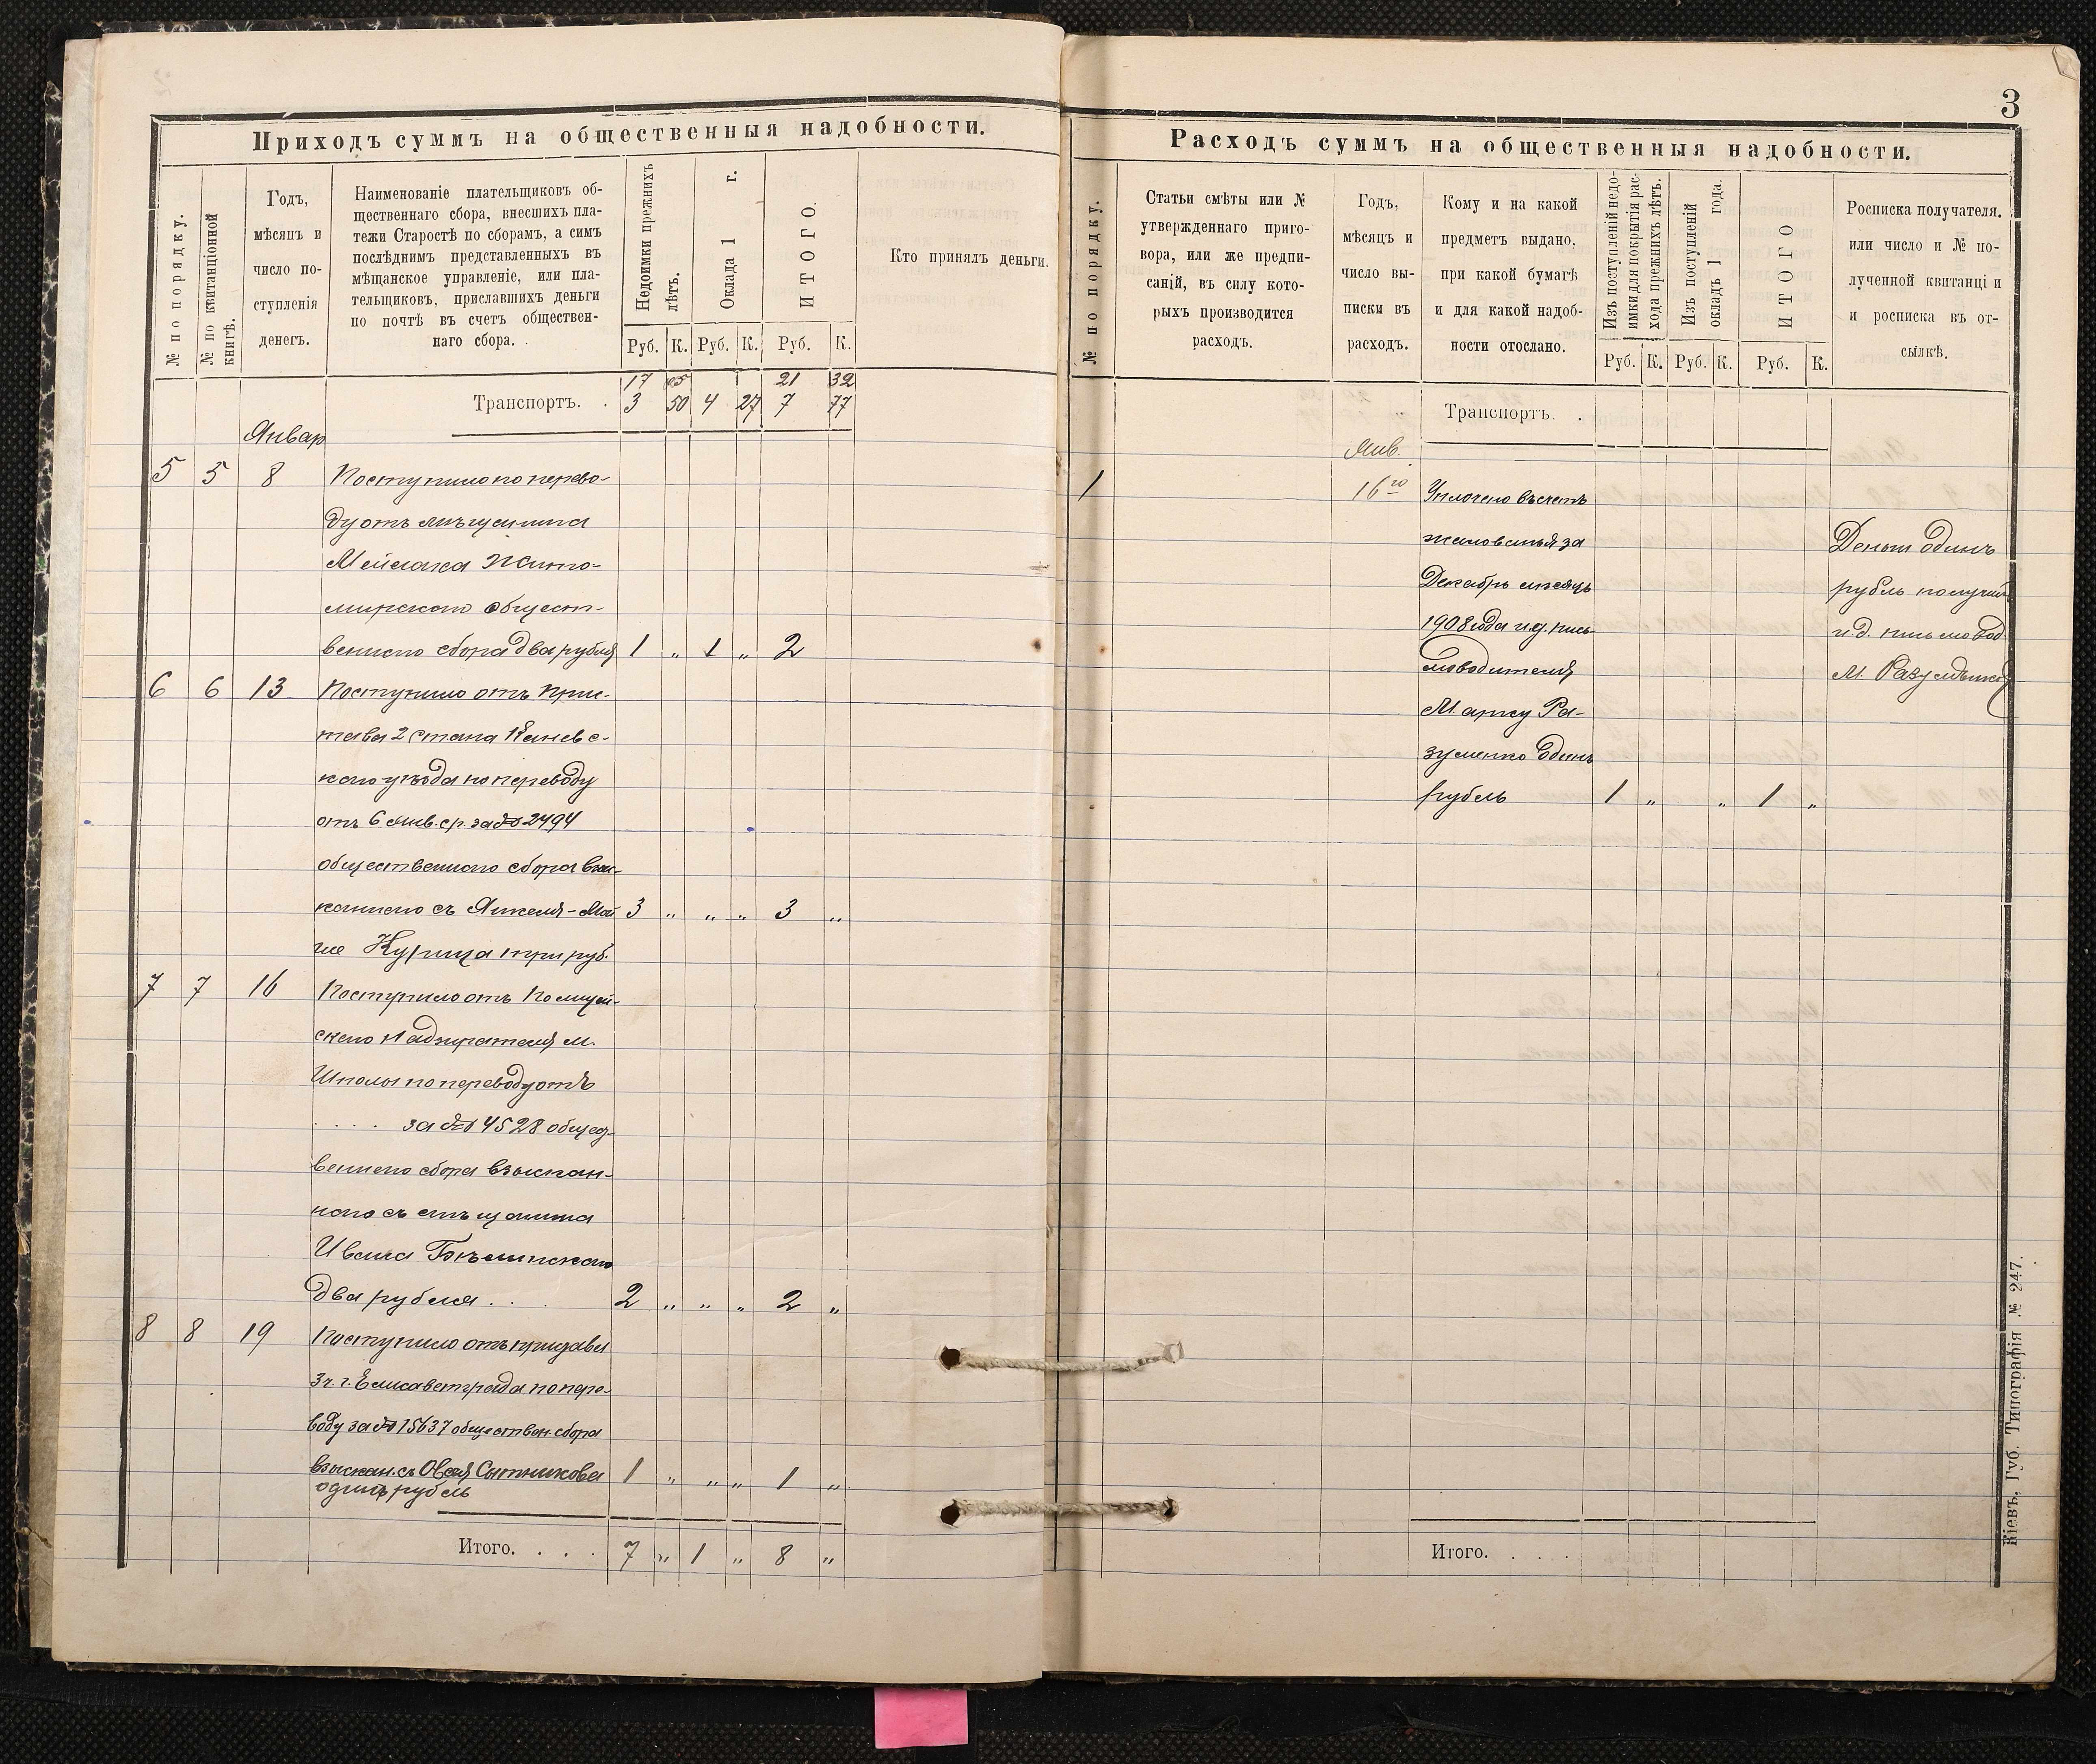 3
Приходъ суммъ на общественныя надобности.
№ по порядку.
№ по квитанціонной
книгѣ.
Годъ,
мѣсяцъ и
число по-
ступленія
денегъ.
Наименованіе плательщиковъ об-
щественнаго сбора, внесшихъ пла-
тежи Старостѣ по сборамъ, а симъ
послѣднимъ представленныхъ въ
мѣщанское управленіе, или пла-
тельщиковъ, приславшихъ деньги
по почтѣ въ счетъ обществен-
наго сбора.
Недоимки прежнихъ
лѣтъ.
Оклада 1 г.
ИТОГО.
Кто принялъ деньги.
Руб. К. Руб. К. Руб. К.
17 05 21 32
Транспортъ. . 3 50 4 27 7 77
Январ
5 5 8 Поступило по перево-
ду отъ мѣщанина
Жито-
мирскаго общест-
веннаго сбора два рубля 1 „ 1 „ 2
6 6 13 Поступило отъ При-
става 2 стана Каневс-
каго уѣзда по переводу
отъ 6 Янв. с.г. за № 2494
общественнаго сбора взы-
каннаго съ Янкеля-Мой
ше Курица три руб. 3 „ „ „ 3 „
7 7 16 Поступило отъ Полицей-
скаго Надзирателя м.
Шполы по переводу отъ
. . . . за № 4528 общест-
веннаго сбора взыскан-
наго съ мѣщанина
Ивана
два рубля . . . 2 „ „ „ 2 „
8 8 19 Поступило отъ пристава
3 ч. г. Елисаветграда по пере-
воду за № 15637 обществен. сбора
взыскан. съ Овсея Сытникова 1 „ „ „ 1 „
одинъ рубль
Итого. . . . 7 „ 1 „ 8 „
Расходъ суммъ на общественныя надобности.
№ по порядку.
Статьи смѣты или №
утвержденнаго приго-
вора, или же предпи-
саній, въ силу кото-
рыхъ производится
расходъ.
Годъ,
мѣсяцъ и
число вы-
писки въ
расходъ.
Кому и на какой
предметъ выдано,
при какой бумагѣ
и для какой надоб-
ности отослано.
Изъ поступленій недо-
имки для покрытія рас-
хода прежнихъ лѣтъ.
Изъ поступленій
окладъ 1 года.
ИТОГО
Росписка получателя.
или число и № по-
лученной квитанці и
и росписка въ от-
сылкѣ.
Руб. К. Руб. К. Руб. К.
Транспортъ. .
Янв.
1 16го Уплочено въ счетъ
жалованья за
Декабрь мѣсяцъ
1908 года и.д. пись-
моводителя
Марку Ра-
зуменко Одинъ
рубль 1 „ „ 1 „
Деньги Одинъ
рубль получилъ
и.д. письмовод
М. Разуменко
Итого. . . .
Кіевъ. Губ. Типографія № 247.